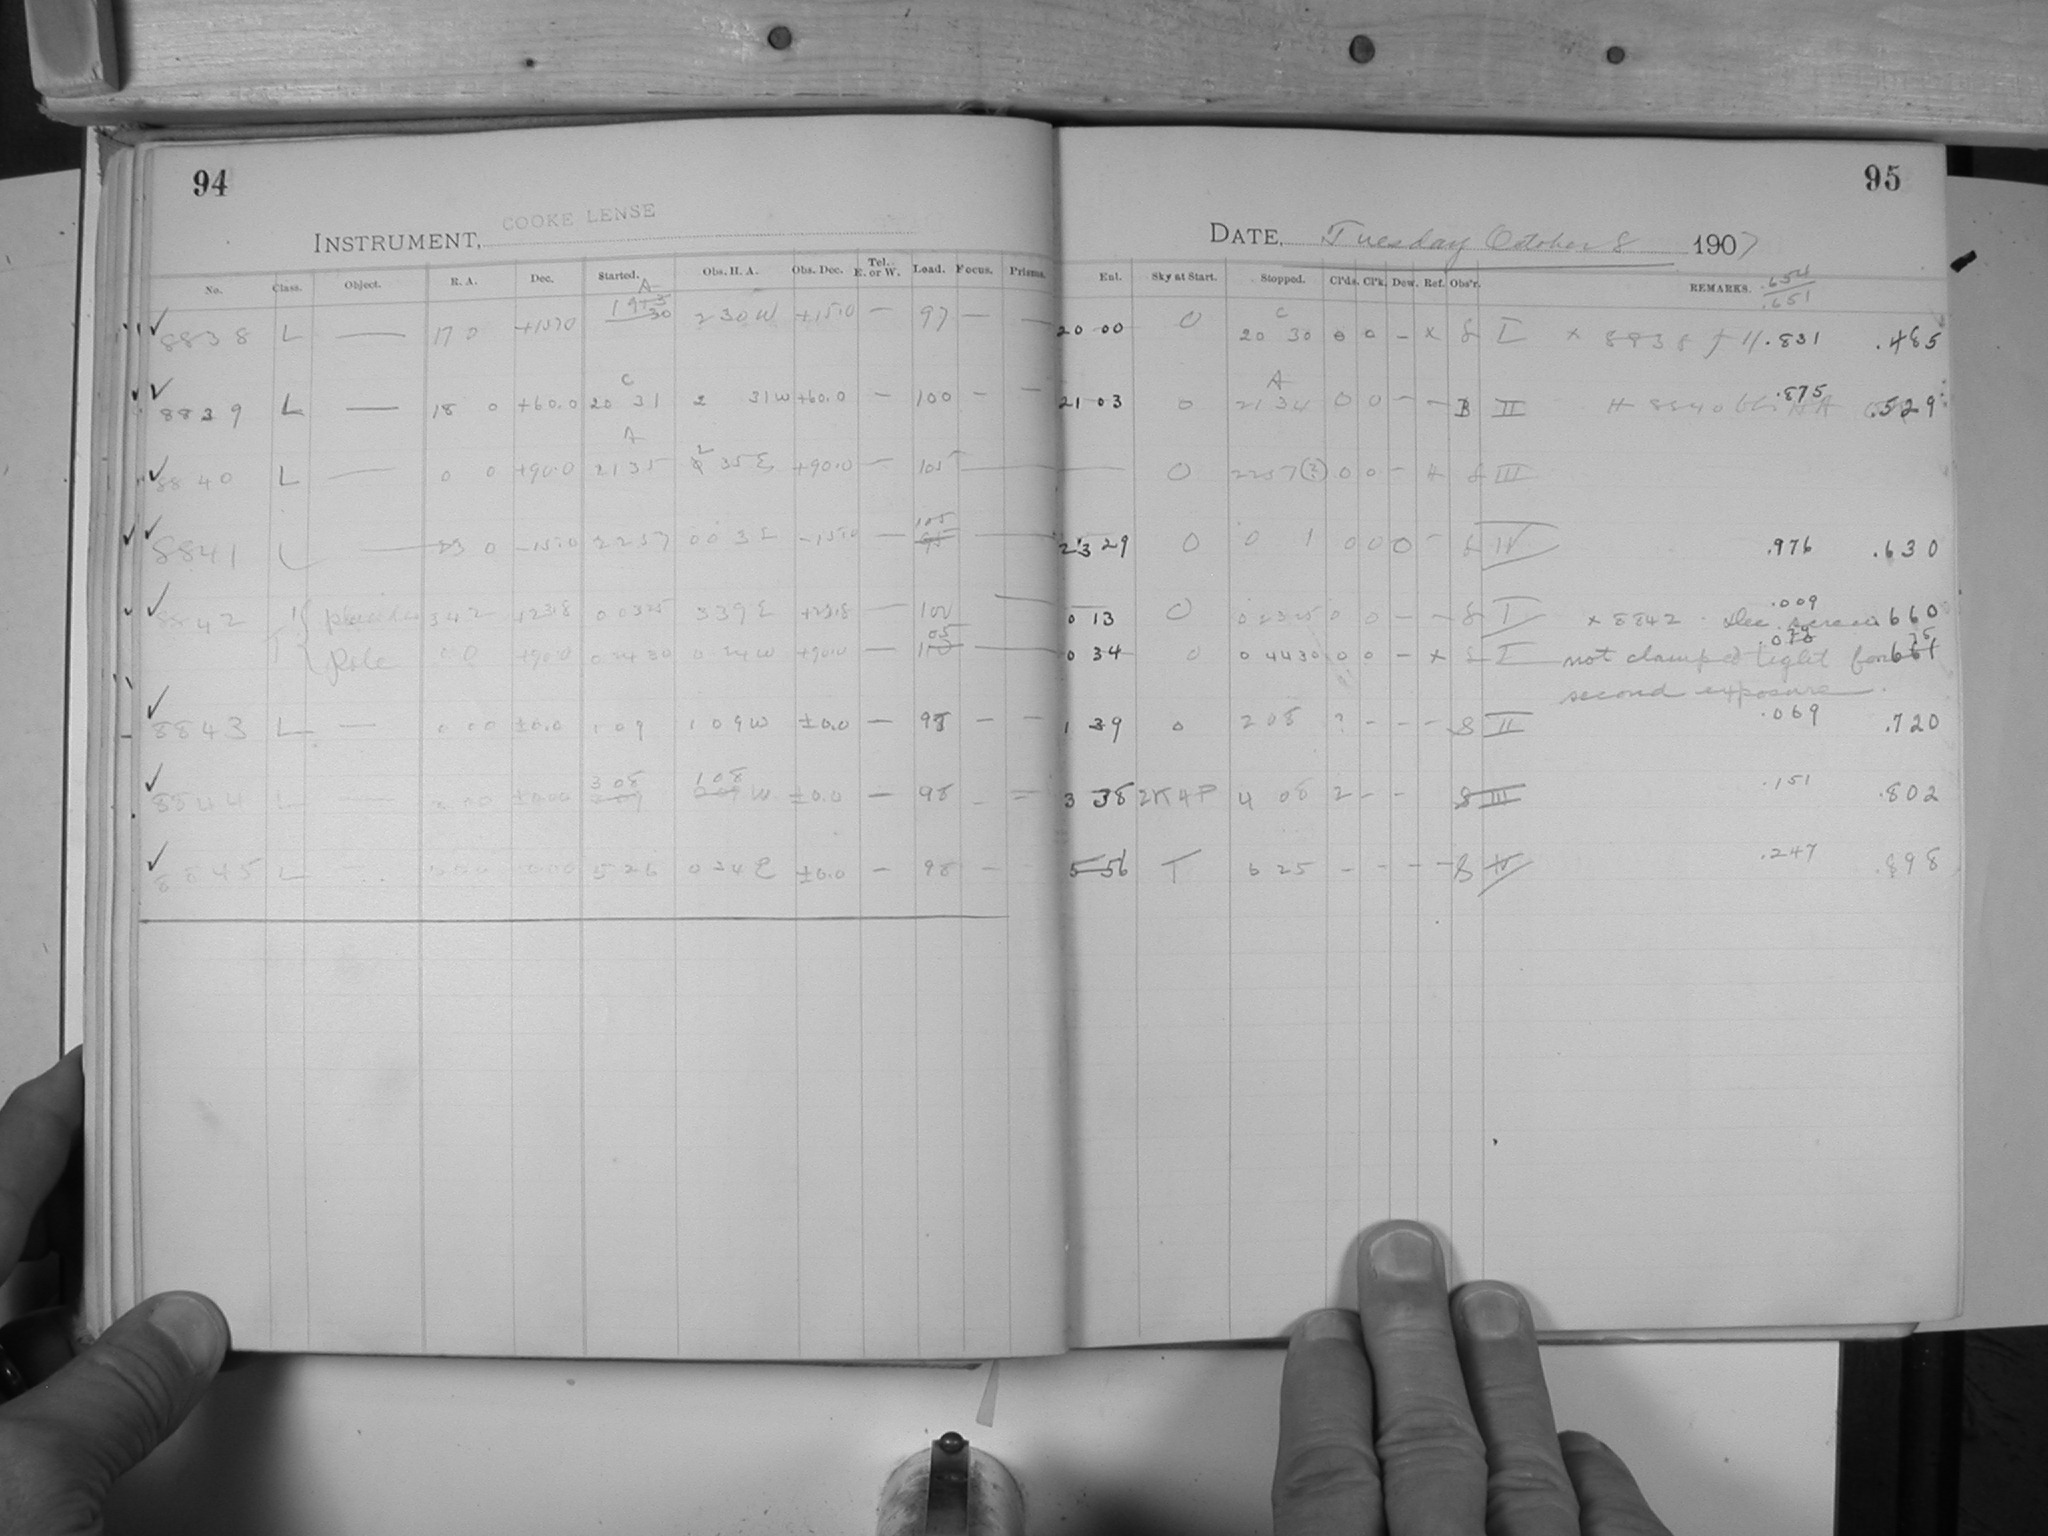 94
COOKE LENSE
INSTRUMENT,
No. Class. Object. R. A. Dec. Started. Obs. H. A. Obs. Dec. Tel. E. or W. Load. Focus. Prisms.
8838 L — 17 0 +15.0 19 30 2 30 W +15.0 — 97 — —
8839 L — 18 0 +60.0 20 31 2 31 W +60.0 — 100 — —
8840 L — 0 0 +90.0 21 35 2 35 E +90.0 — 105 —
8841 L — 23 0 -15.0 22 57 0 03 E -15.0 — 105
8842 3 42 +23.8 0 03 25 3 39 E +23.8 — 100 —
Pole 0 0 +90.0 0 24 30 0 24 W +90.0 — 105 —
8843 L — 0 00 ±0.0 1 09 1 09 W ±0.0 — 98 — —
8844 L — 3 08 1 08 W ±0.0 — 98 —
8845 L 5 26 0 34 E ±0.0 — 98 —
95
DATE, Tuesday October 8 1907
Ent. Sky at Start. Stopped. Cl'ds. Cl'k. Dew. Ref. Obs'r. REMARKS. .654 .651
20 00 0 C 20 30 0 0 — x S I x 8838 .831 .485
21 03 0 A 21 34 0 0 — — B II 8840 .875 .529
0 22 57 0 0 — S III
23 29 0 0 1 0 0 0 — S IV .976 .630
0 13 0 0 23 25 0 0 — — S I x 8842 Dec. screw .009 660
0 34 0 0 44 30 0 0 — x S I not clamped tight for
second exposure.
1 39 0 2 08 ? — — — S II .069 .720
3 38 4 08 2 — — S III .151 .802
5 56 T 6 25 — — — — S IV .247 .898